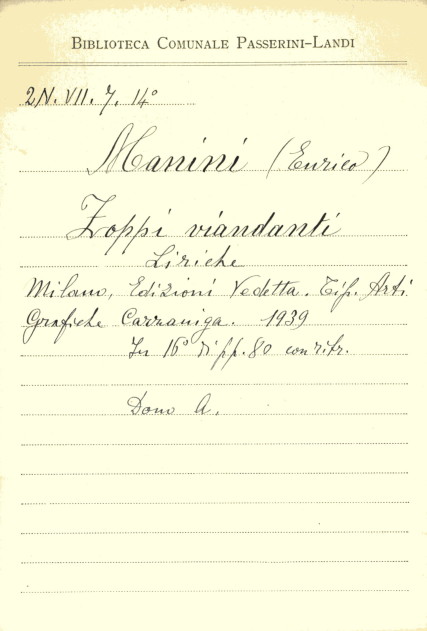 BIBLIOTECA COMUNALE PASSERINI-LANDI
2N. VII. 7. 14°
Manini (Enrico)
Zoppi viandanti
Liriche
Milano, Edizioni Vedetta. Tip. Arti
Grafiche Carzaniga. 1939
In 16° di pp. 80 con ritr.
Dono A.